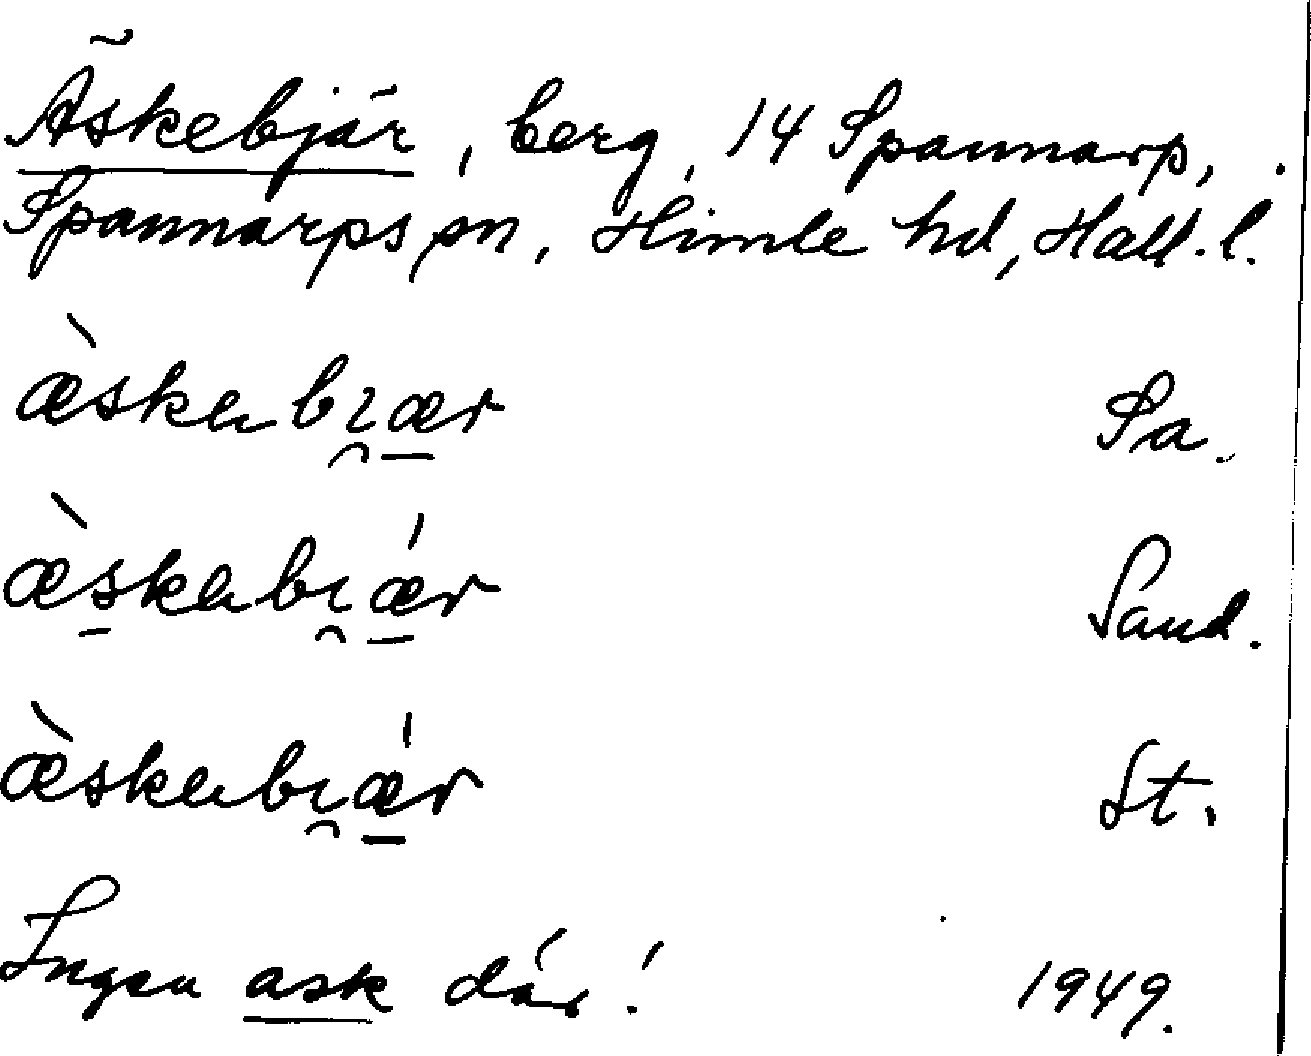 Äskebjär, berg, 14 Spannarp,
Spannarps sn, Himle hd, Hall. l.
æ̀skɐbɪ̯æ̠r Sa.
æ̀s̠kɐbɪ̯ǽ̠r Sand.
æ̀skɐbɪ̯ǽ̠r St.
Ingen ask där! 1949.